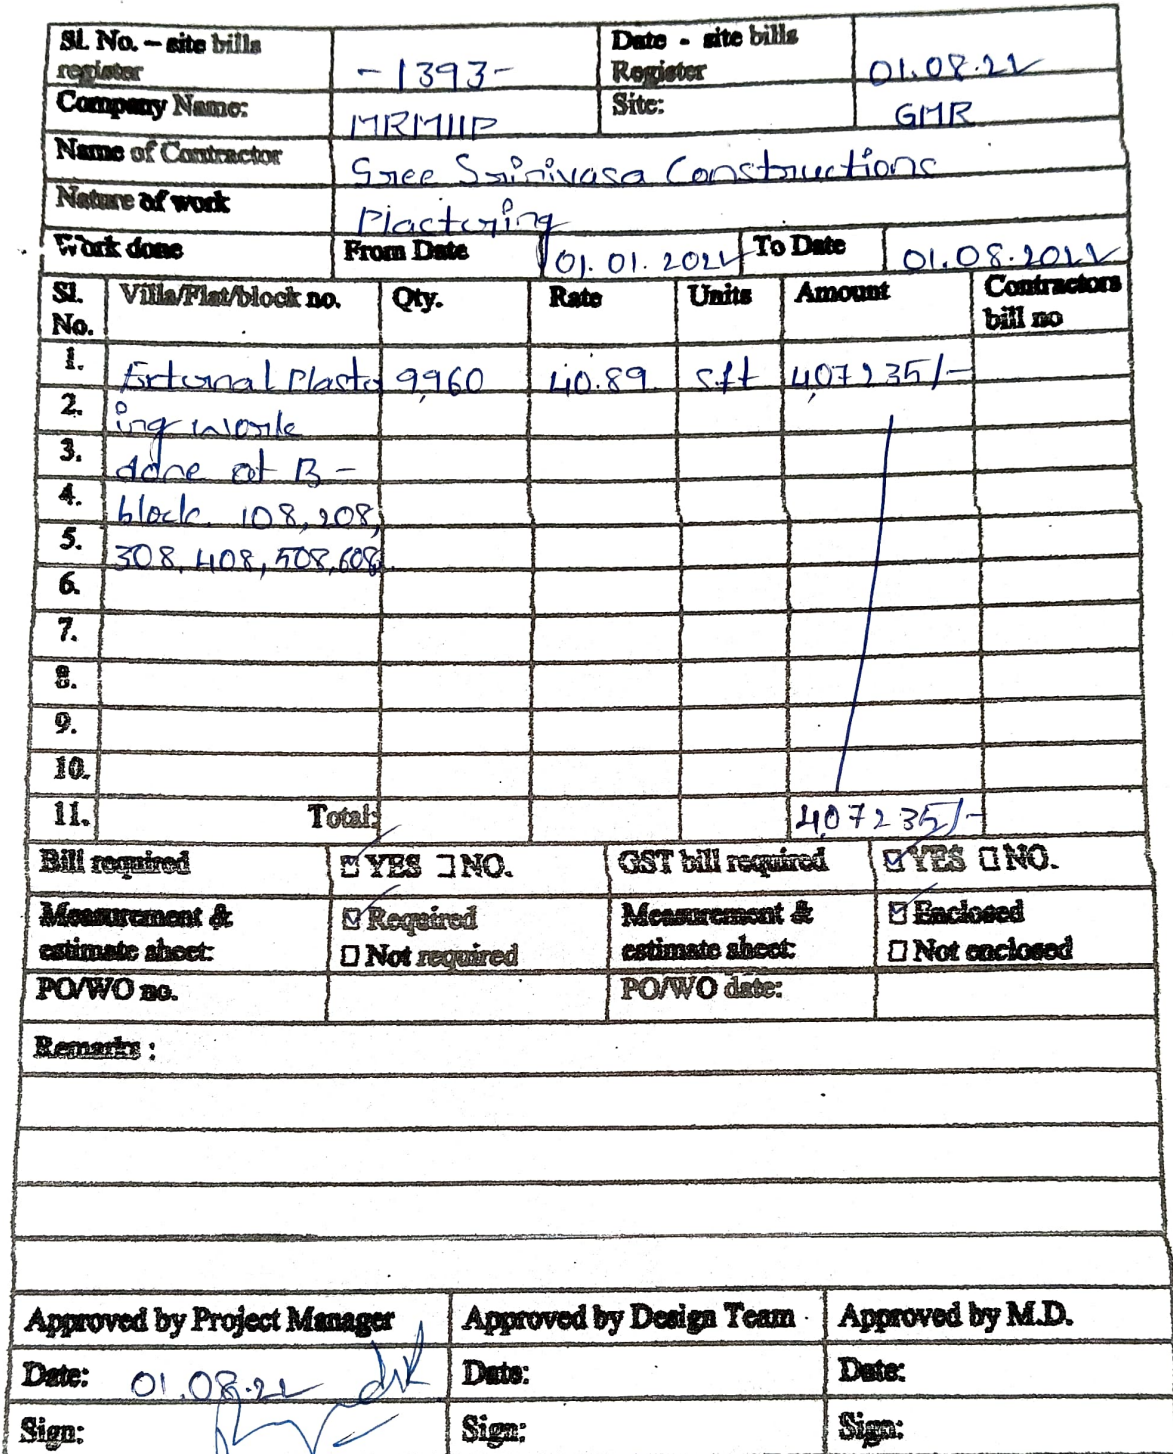 Sl. No. – site bills register -1393- Date - site bills Register 01.08.22
Company Name: MRMIIP Site: GMR
Name of Contractor Sree Srinivasa Constructions
Nature of work Plastering
Work done From Date 01.01.2022 To Date 01.08.2022
Sl. No. Villa/Flat/block no. Qty. Rate Units Amount Contractors bill no
1. External Plaster 9960 40.89 sft 407235/-
2. ing work
3. done at B-
4. block. 108,208,
5. 308,408,508,608.
6.
7.
8.
9.
10.
11. Total: 407235/-
Bill required ☑ YES ☐ NO. GST bill required ☑ YES ☐ NO.
Measurement & estimate sheet: ☑ Required ☐ Not required Measurement & estimate sheet: ☑ Enclosed ☐ Not enclosed
PO/WO no. PO/WO date:
Remarks :
Approved by Project Manager Approved by Design Team Approved by M.D.
Date: 01.08.22 Date: Date:
Sign: Sign: Sign: